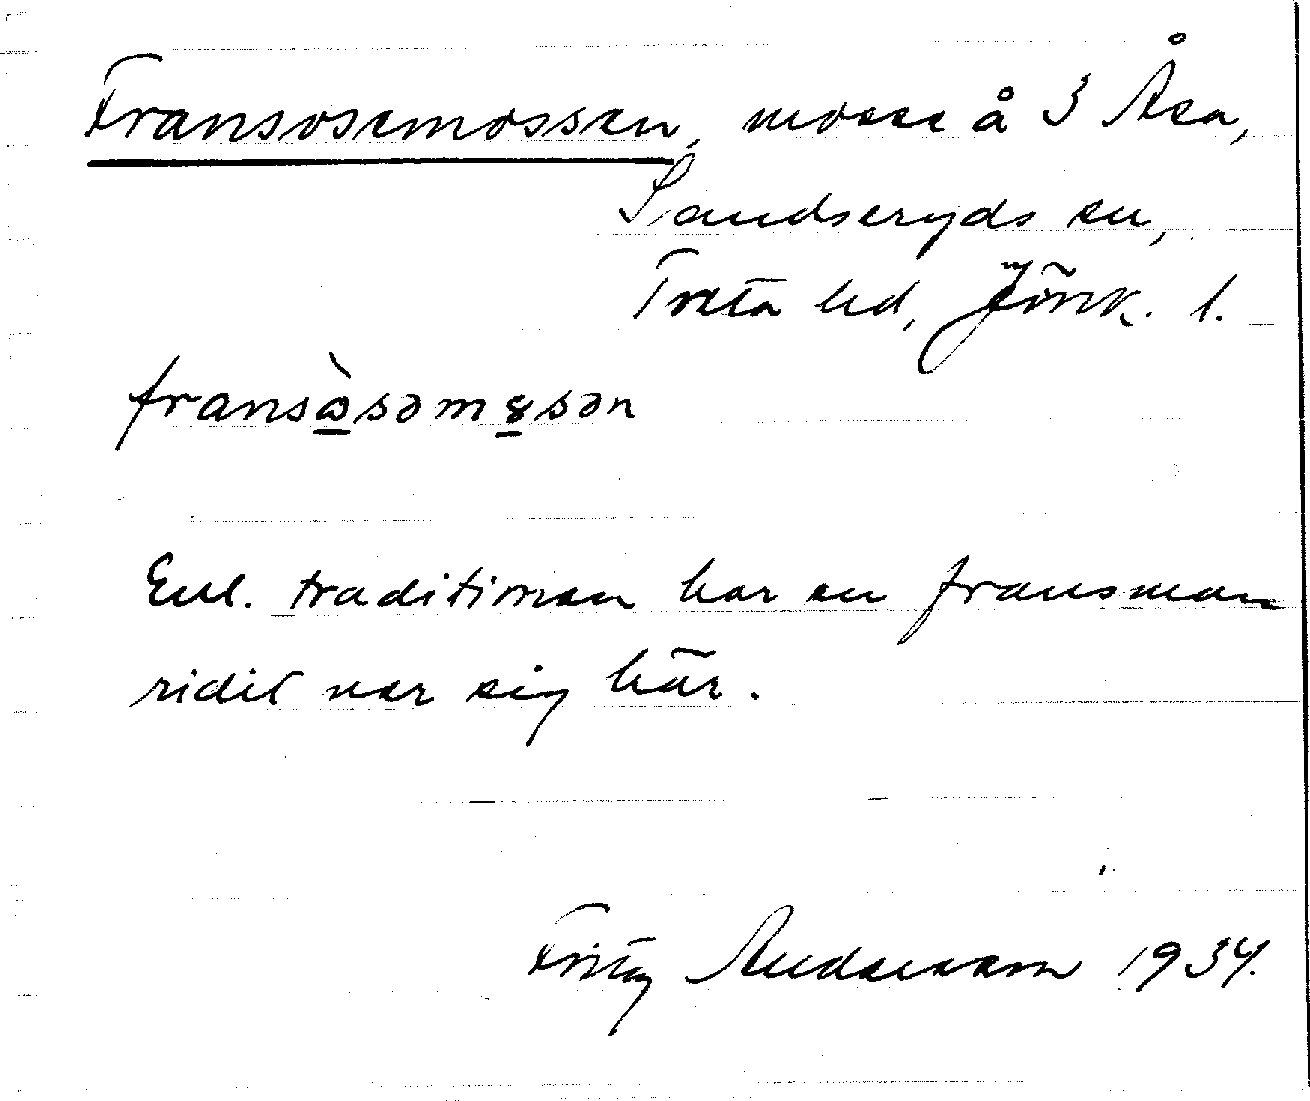 Fransosemossen, mosse å 3 Åsa,
Sandseryds sn,
Tveta hd, Jönk. l.
fransòsəmɞsən
Enl. traditionen har en fransman
ridit ner sig här.
Fritz Andersson 1934.